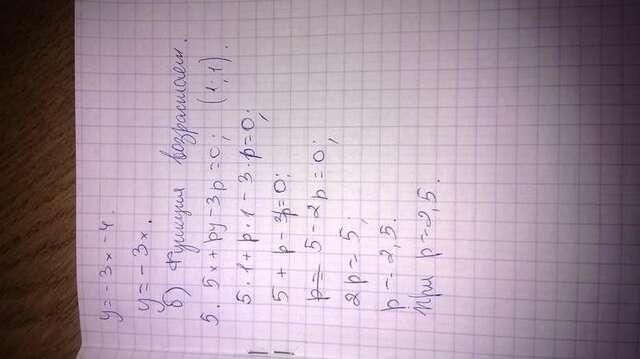 y=-3x-4.
y=-3x.
б) Функция возрастает.
5. 5x+py-3p=0; (1;1).
5·1+p·1-3·p=0;
5+p-3p=0;
5-2p=0;
2p=5;
p=-2,5.
при p=-2,5.